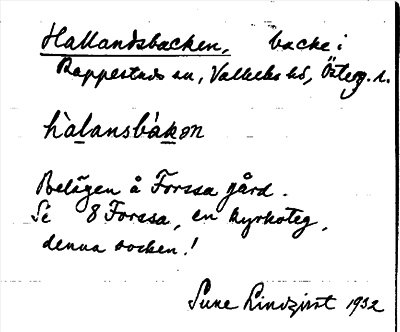 Hallandsbacken, backe i
Rappestads sn, Valkebo hd, Österg. l.
hàlansbákǝn
Belägen å Forssa gård.
Se 8 Forssa, en kyrkoteg,
denna socken!
Sune Lindqvist 1932